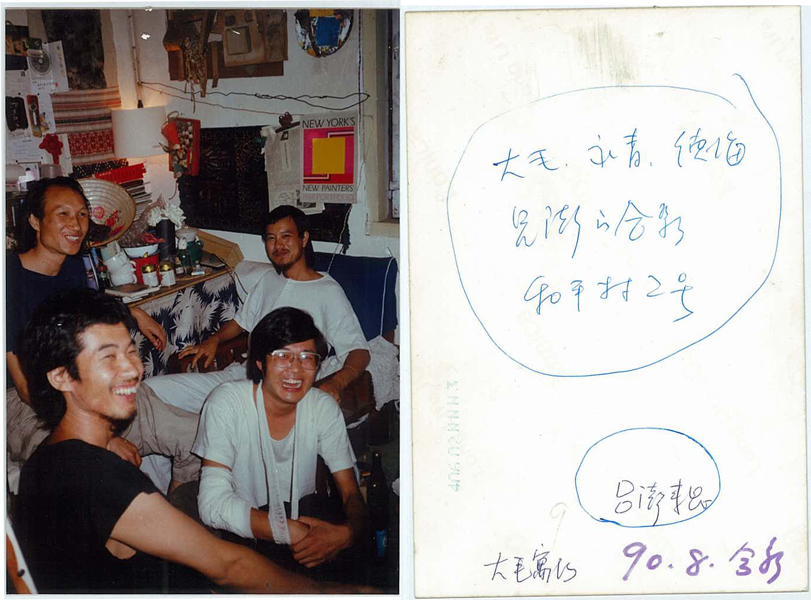 NEW YORK'S
NEW PAINTERS
大毛、永青、
吕澎的合影
和平村2号
吕澎来昆
大毛
90.8.合影